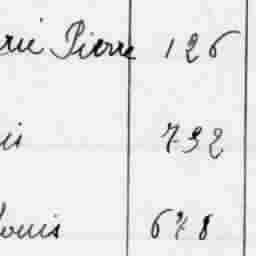 rie Pierre 126
is 732
Louis 678